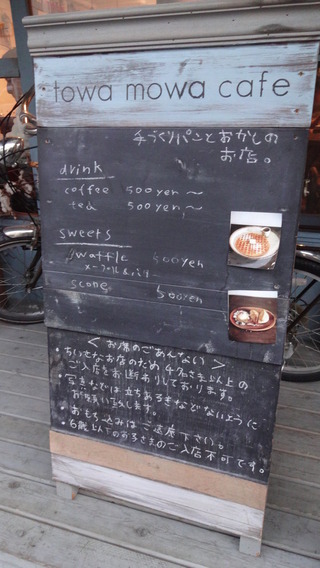 towa mowa cafe
手づくりパンとおかしの
お店。
drink
coffee 500yen 〜
tea 500yen 〜
sweets
waffle 500yen
メープル&バター
scone 500yen
< お席のごあんない >
・ちいさなお店のため 4名さま以上の
ご入店をお断わりしております。
・写真などは立ちあるきなどないように
お願い致します。
・おもち込みはご遠慮下さい。
・6歳以下のお子さまのご入店不可です。